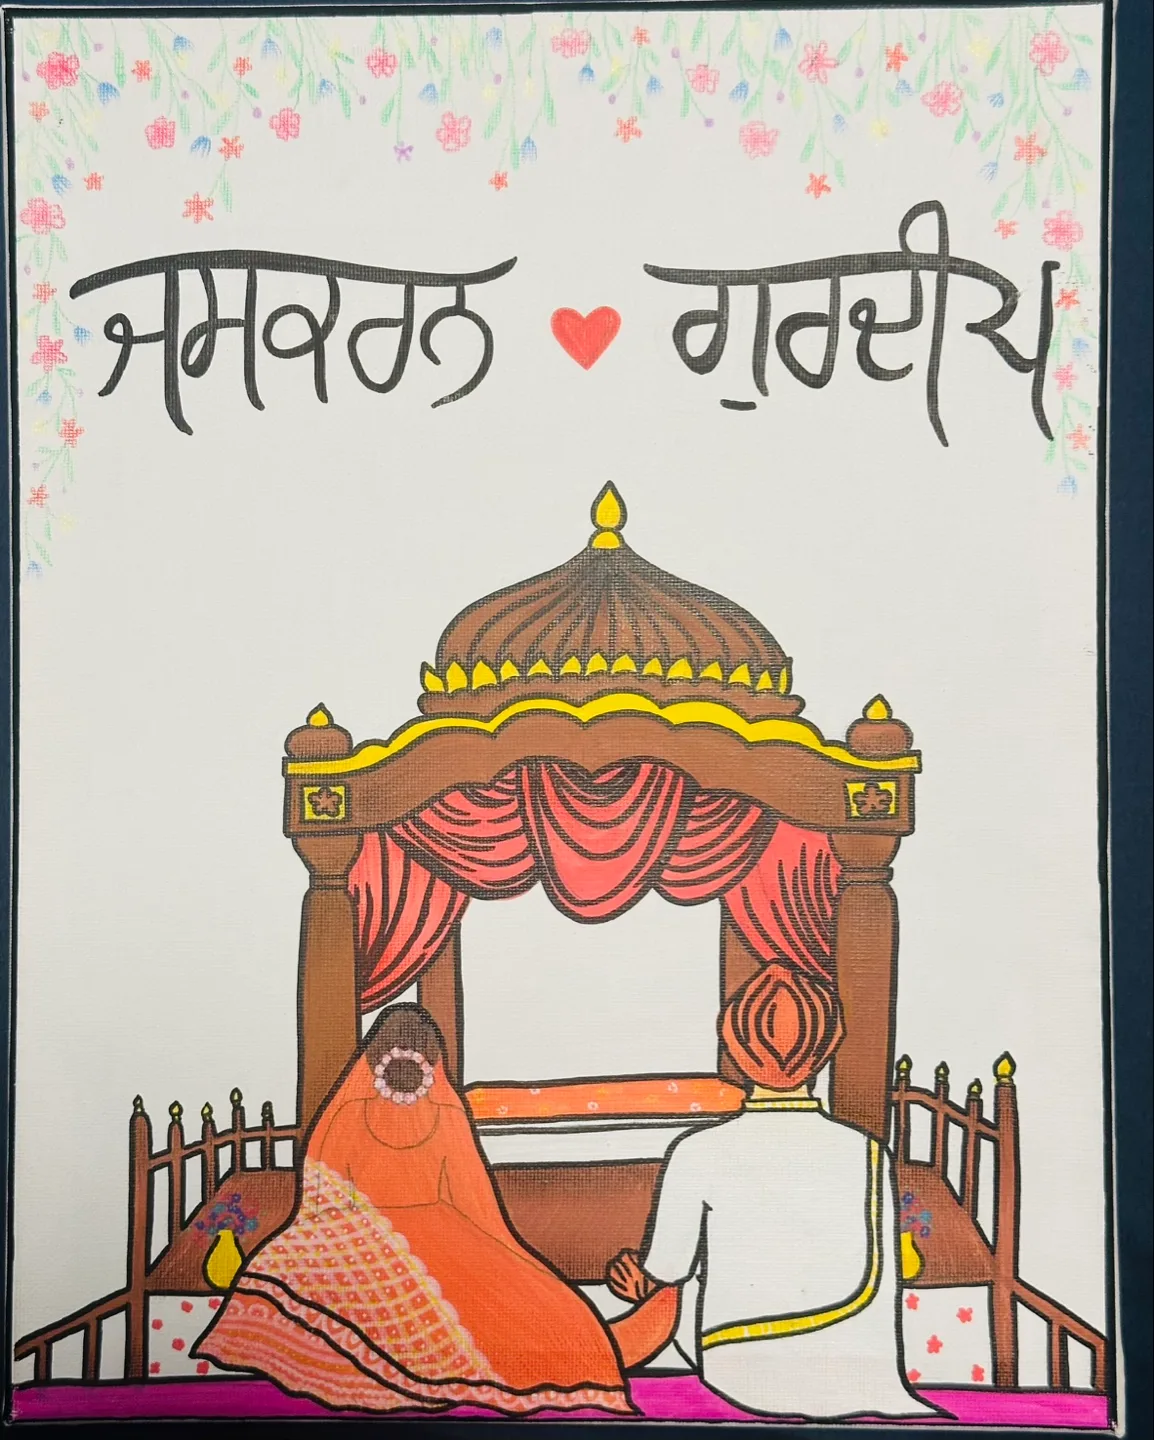 ਜਸਕਰਨ ਗੁਰਦੀਪ